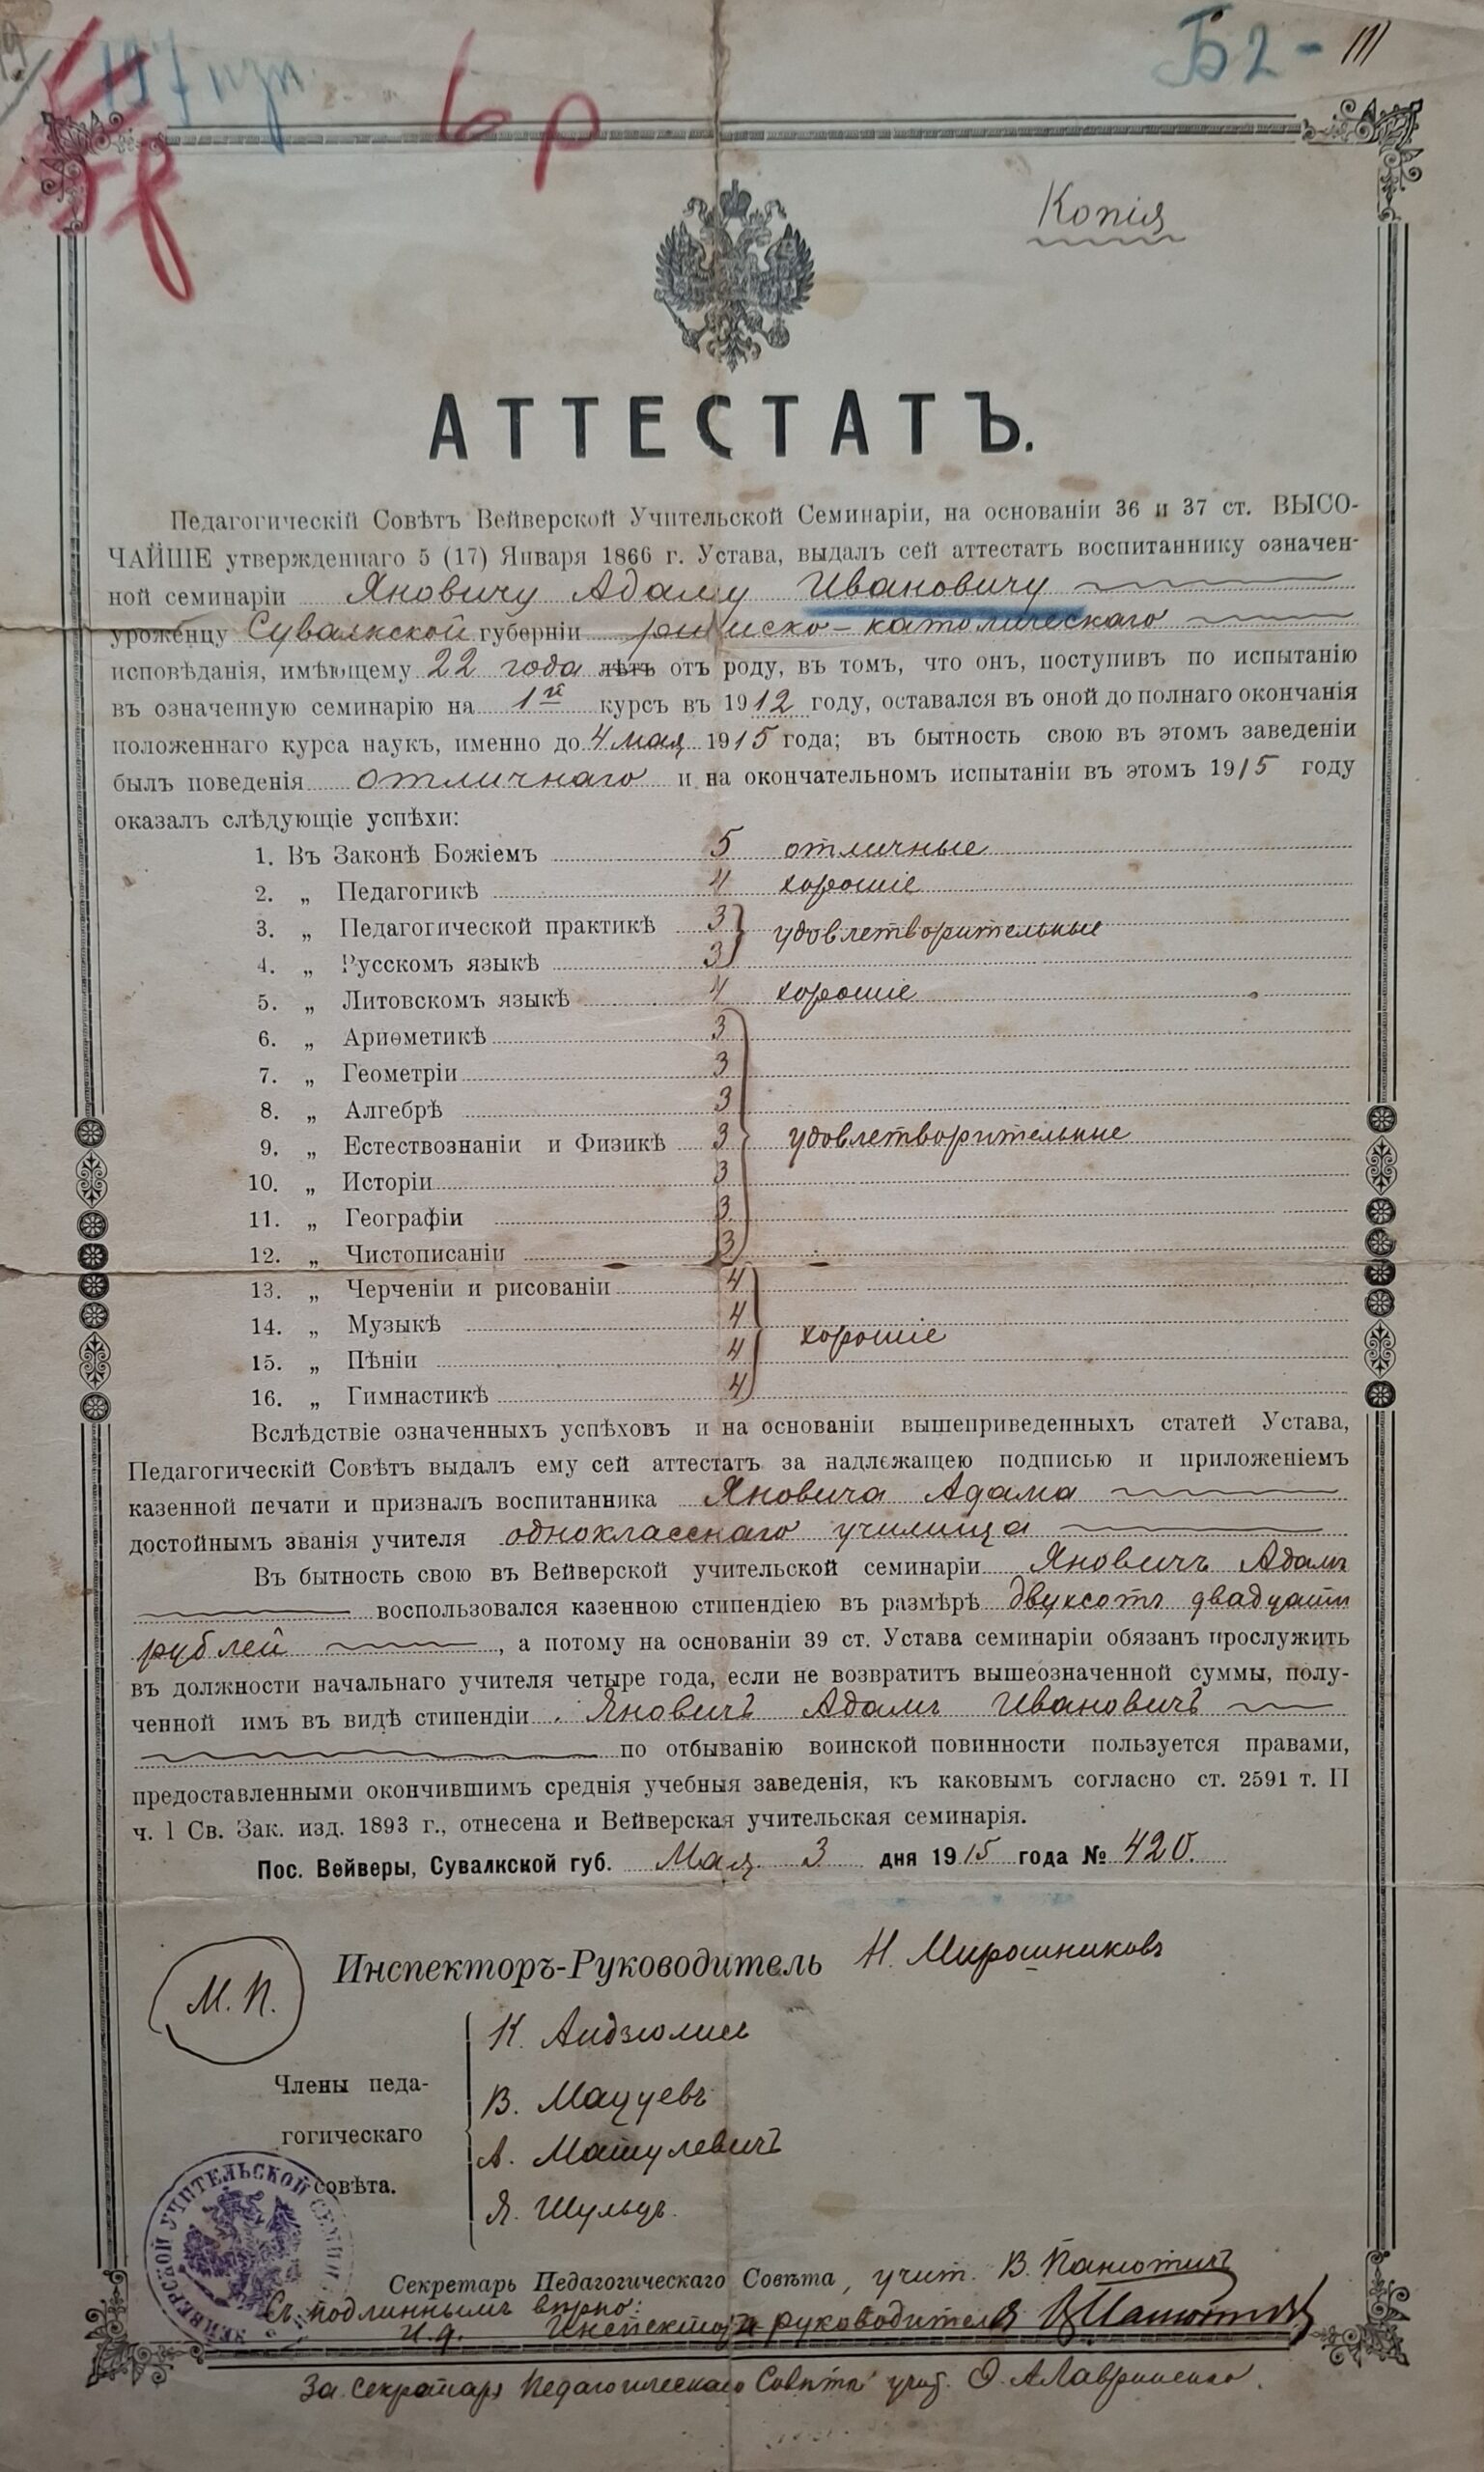 197
6 р
Б2 - 111
Копія
АТТЕСТАТЪ.
Педагогическій Совѣтъ Вейверской Учительской Семинаріи, на основаніи 36 и 37 ст. ВЫСО-
ЧАЙШЕ утвержденнаго 5 (17) Января 1866 г. Устава, выдалъ сей аттестатъ воспитаннику означен-
ной семинаріи Яновичу Адаму Ивановичу
уроженцу Сувалкской губерніи римско-католическаго
исповѣданія, имѣющему 22 года лѣтъ отъ роду, въ томъ, что онъ, поступивъ по испытанію
въ означенную семинарію на 1й курсъ въ 1912 году, оставался въ оной до полнаго окончанія
положеннаго курса наукъ, именно до 4 мая 1915 года; въ бытность свою въ этомъ заведеніи
былъ поведенія отличнаго и на окончательномъ испытаніи въ этомъ 1915 году
оказалъ слѣдующіе успѣхи:
1. Въ Законѣ Божіемъ 5 отличные
2. „ Педагогикѣ 4 хорошіе
3. „ Педагогической практикѣ 3 удовлетворительные
4. „ Русскомъ языкѣ 3
5. „ Литовскомъ языкѣ 4 хорошіе
6. „ Ариѳметикѣ 3
7. „ Геометріи 3
8. „ Алгебрѣ 3
9. „ Естествознаніи и Физикѣ 3 удовлетворительные
10. „ Исторіи 3
11. „ Географіи 3
12. „ Чистописаніи 3
13. „ Черченіи и рисованіи 4
14. „ Музыкѣ 4 хорошіе
15. „ Пѣніи 4
16. „ Гимнастикѣ 4
Вслѣдствіе означенныхъ успѣховъ и на основаніи вышеприведенныхъ статей Устава,
Педагогическій Совѣтъ выдалъ ему сей аттестатъ за надлежащею подписью и приложеніемъ
казенной печати и призналъ воспитанника Яновича Адама
достойнымъ званія учителя однокласснаго училища
Въ бытность свою въ Вейверской учительской семинаріи Яновичъ Адамъ
воспользовался казенною стипендіею въ размѣрѣ двухсотъ двадцати
рублей, а потому на основаніи 39 ст. Устава семинаріи обязанъ прослужить
въ должности начальнаго учителя четыре года, если не возвратитъ вышеозначенной суммы, полу-
ченной имъ въ видѣ стипендіи. Яновичъ Адамъ Ивановичъ
по отбыванію воинской повинности пользуется правами,
предоставленными окончившимъ среднія учебныя заведенія, къ каковымъ согласно ст. 2591 т. II
ч. 1 Св. Зак. изд. 1893 г., отнесена и Вейверская учительская семинарія.
Пос. Вейверы, Сувалкской губ. Мая 3 дня 1915 года № 420.
Инспекторъ-Руководитель Н. Мирошниковъ
М. П.
Члены педа-
гогическаго
совѣта.
К. Андзюлисъ
В. Мацуевъ
А. Матулевичъ
Я. Шульцъ.
ВЕЙВЕРСКОЙ УЧИТЕЛЬСКОЙ СЕМИН
Секретарь Педагогическаго Совѣта, учит. В. Панютичъ
Съ подлиннымъ вѣрно:
И. д. Инспектора руководителя
За Секретаря Педагогическаго Совѣта учит.